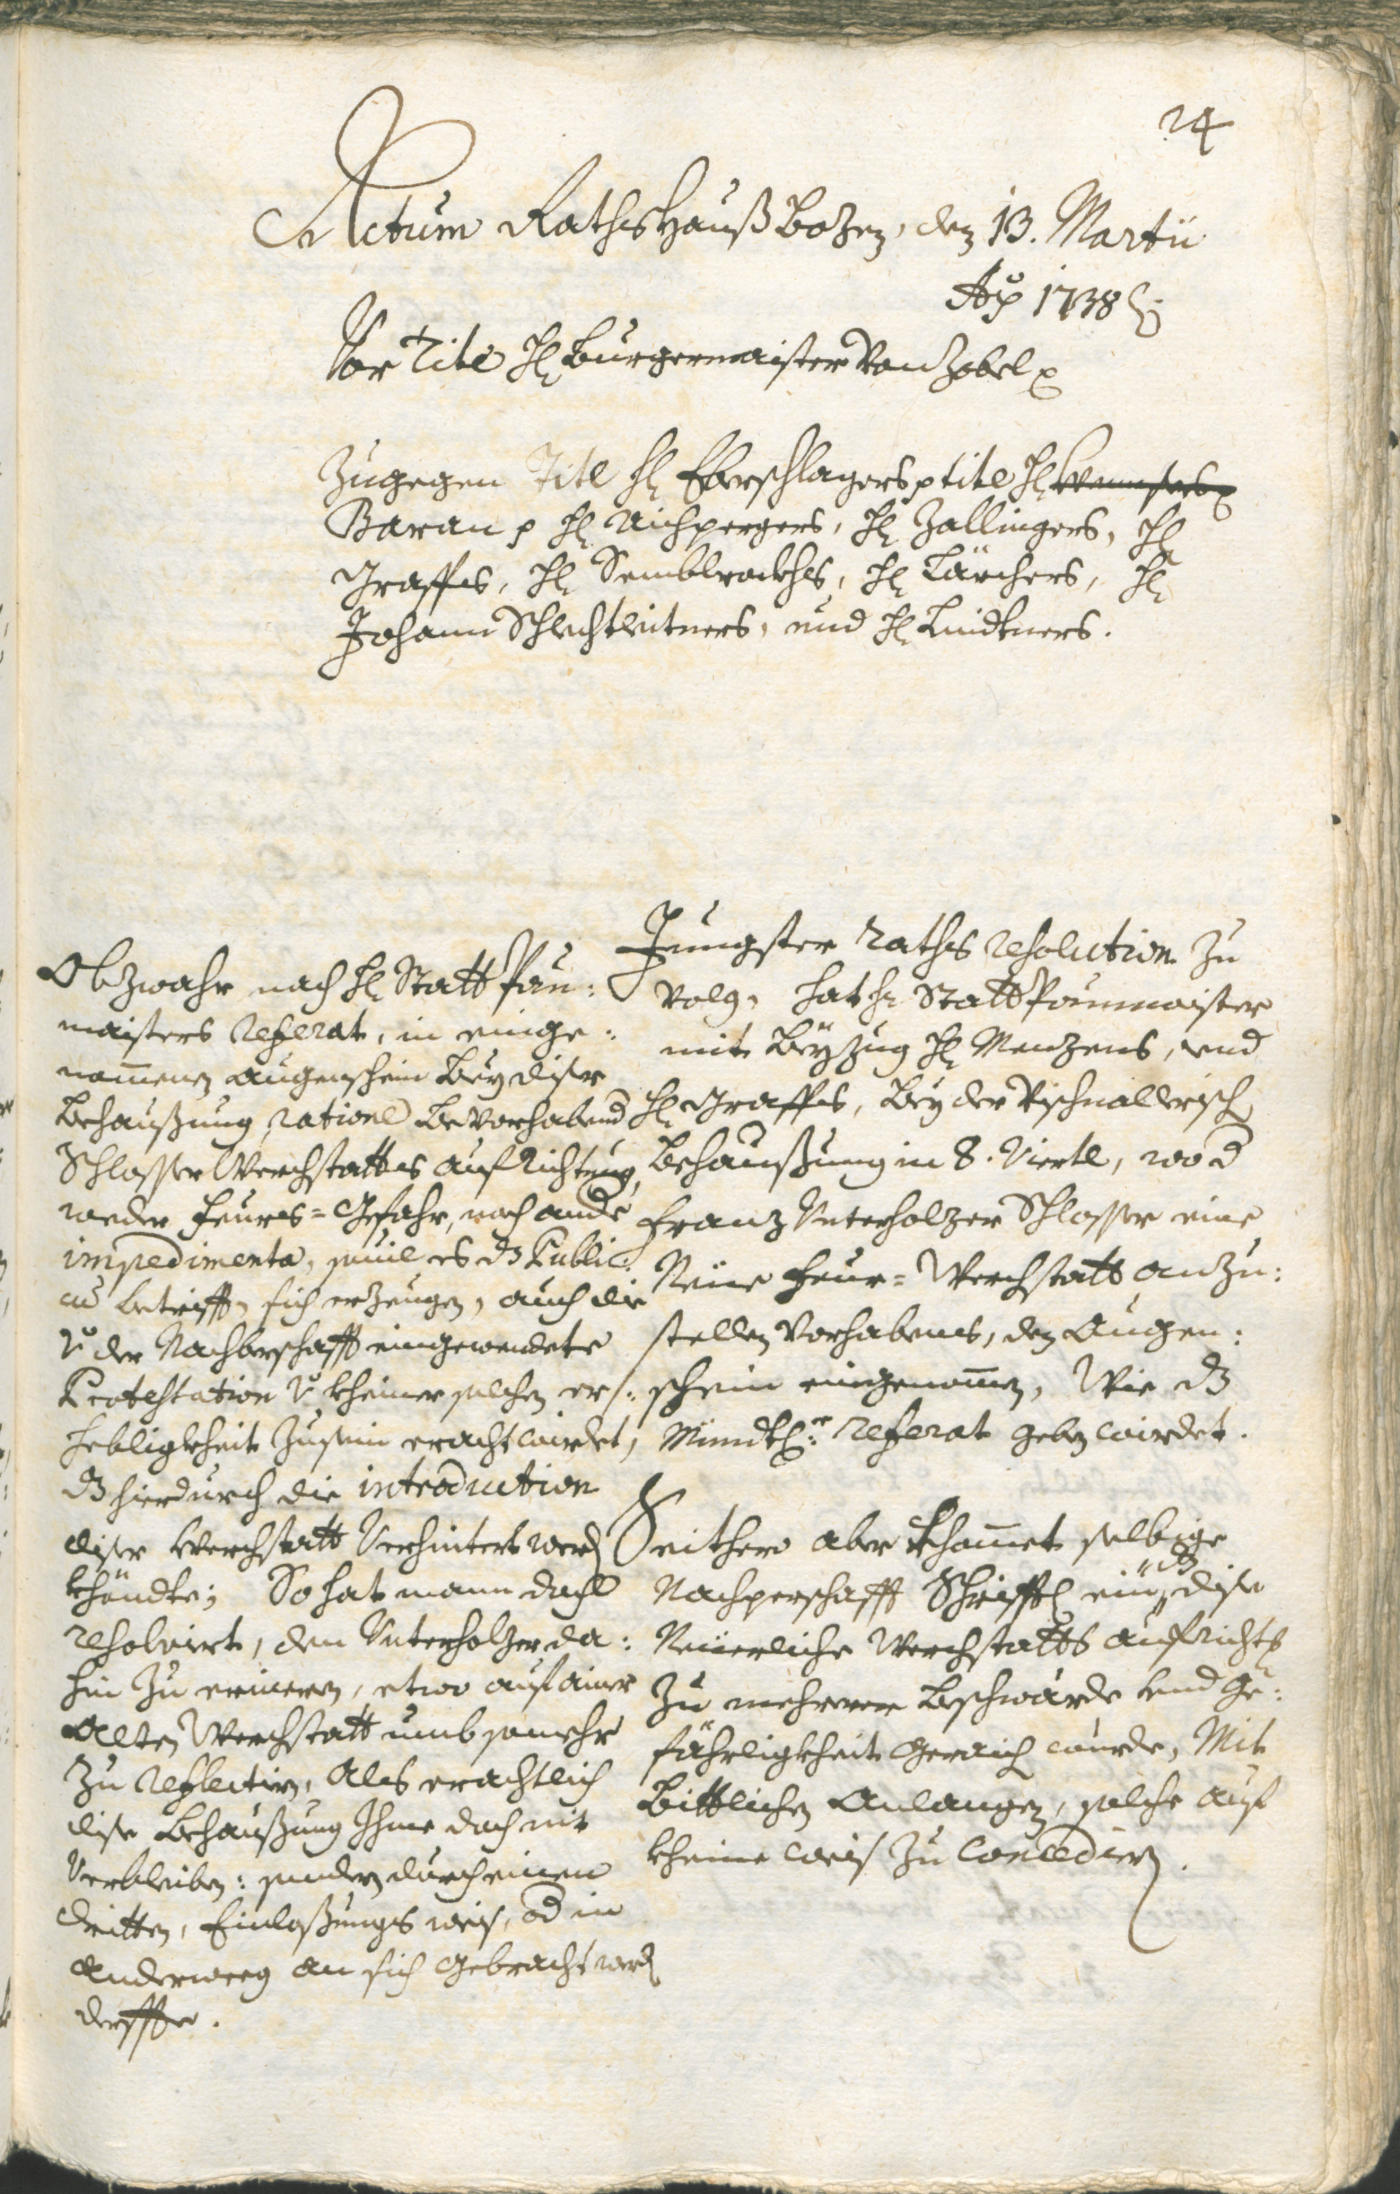 24
Actum RathsHauß Bozen, den 13. Martii
Ao 1738
Vor Title H: Burgermaister Von Zobel
Zugegen Titl H: Eberschlagers p title H:
Baran p H: Aichpergers, H: Zallingers, H:
Graffes, H: Semblrockhs, H: Lärchers, H:
Johann Schlechtleitners, und H: Lindtners.
Jungster Raths resolution zu
Volg, hat H: Statt Paumaister
mit Beyzug H: Menzens, und
H: Graffes, Bey der Vischnallerisch
Behaußung in 8. Viertl, wo d
Franz Unterholzer Schlosser eine
Neüe Feur= Werchstatt anzu:
stellen Vorhabens, den Augen:
schein eingenommen, Wie dz
Mündtl: referat geben wirdet.
Seithero aber khommet selbige
Nachperschafft Schrifftl ein, dz dise
Neüerliche Werchstatts aufricht
zu mehrerer Beschwärde und Ge:
fährligkheit geraich wurde, Mit
Bittlichen Anlangen, solche auf
kheine weis zu Concedirn.
Obzwahr nach H: Statt Pau:
maisters referat, in einge:
nommenen augenschein Bey diser
Behaußung ratione Bevorhabend
Schlosser Werchstatts aufrichtung,
weder Feurs= Gefahr, noch ande
impedimenta, souil es dz Public:
um betrifft, sich erzeugen, auch die
v: der Nachberschafft eingewendete
Protestation v: kheiner solchen er:
hebligkheit zusein eracht wirdet,
dz hierdurch die introduction
diser Werchstatt Verhintert werd
khöndte; So hat mann doch
resolvirt, den Unterholzer da:
hin zu erinern, etwo auf ainer
Alten Werchstatt umb somehr
zu reflectirn, als erachtlich
dise Behaußung Ihme doch nit
Verbleiben: sonder durch einen
dritten, Einloßungs weis, od in
anderweeg an sich gebracht werd
derffte.